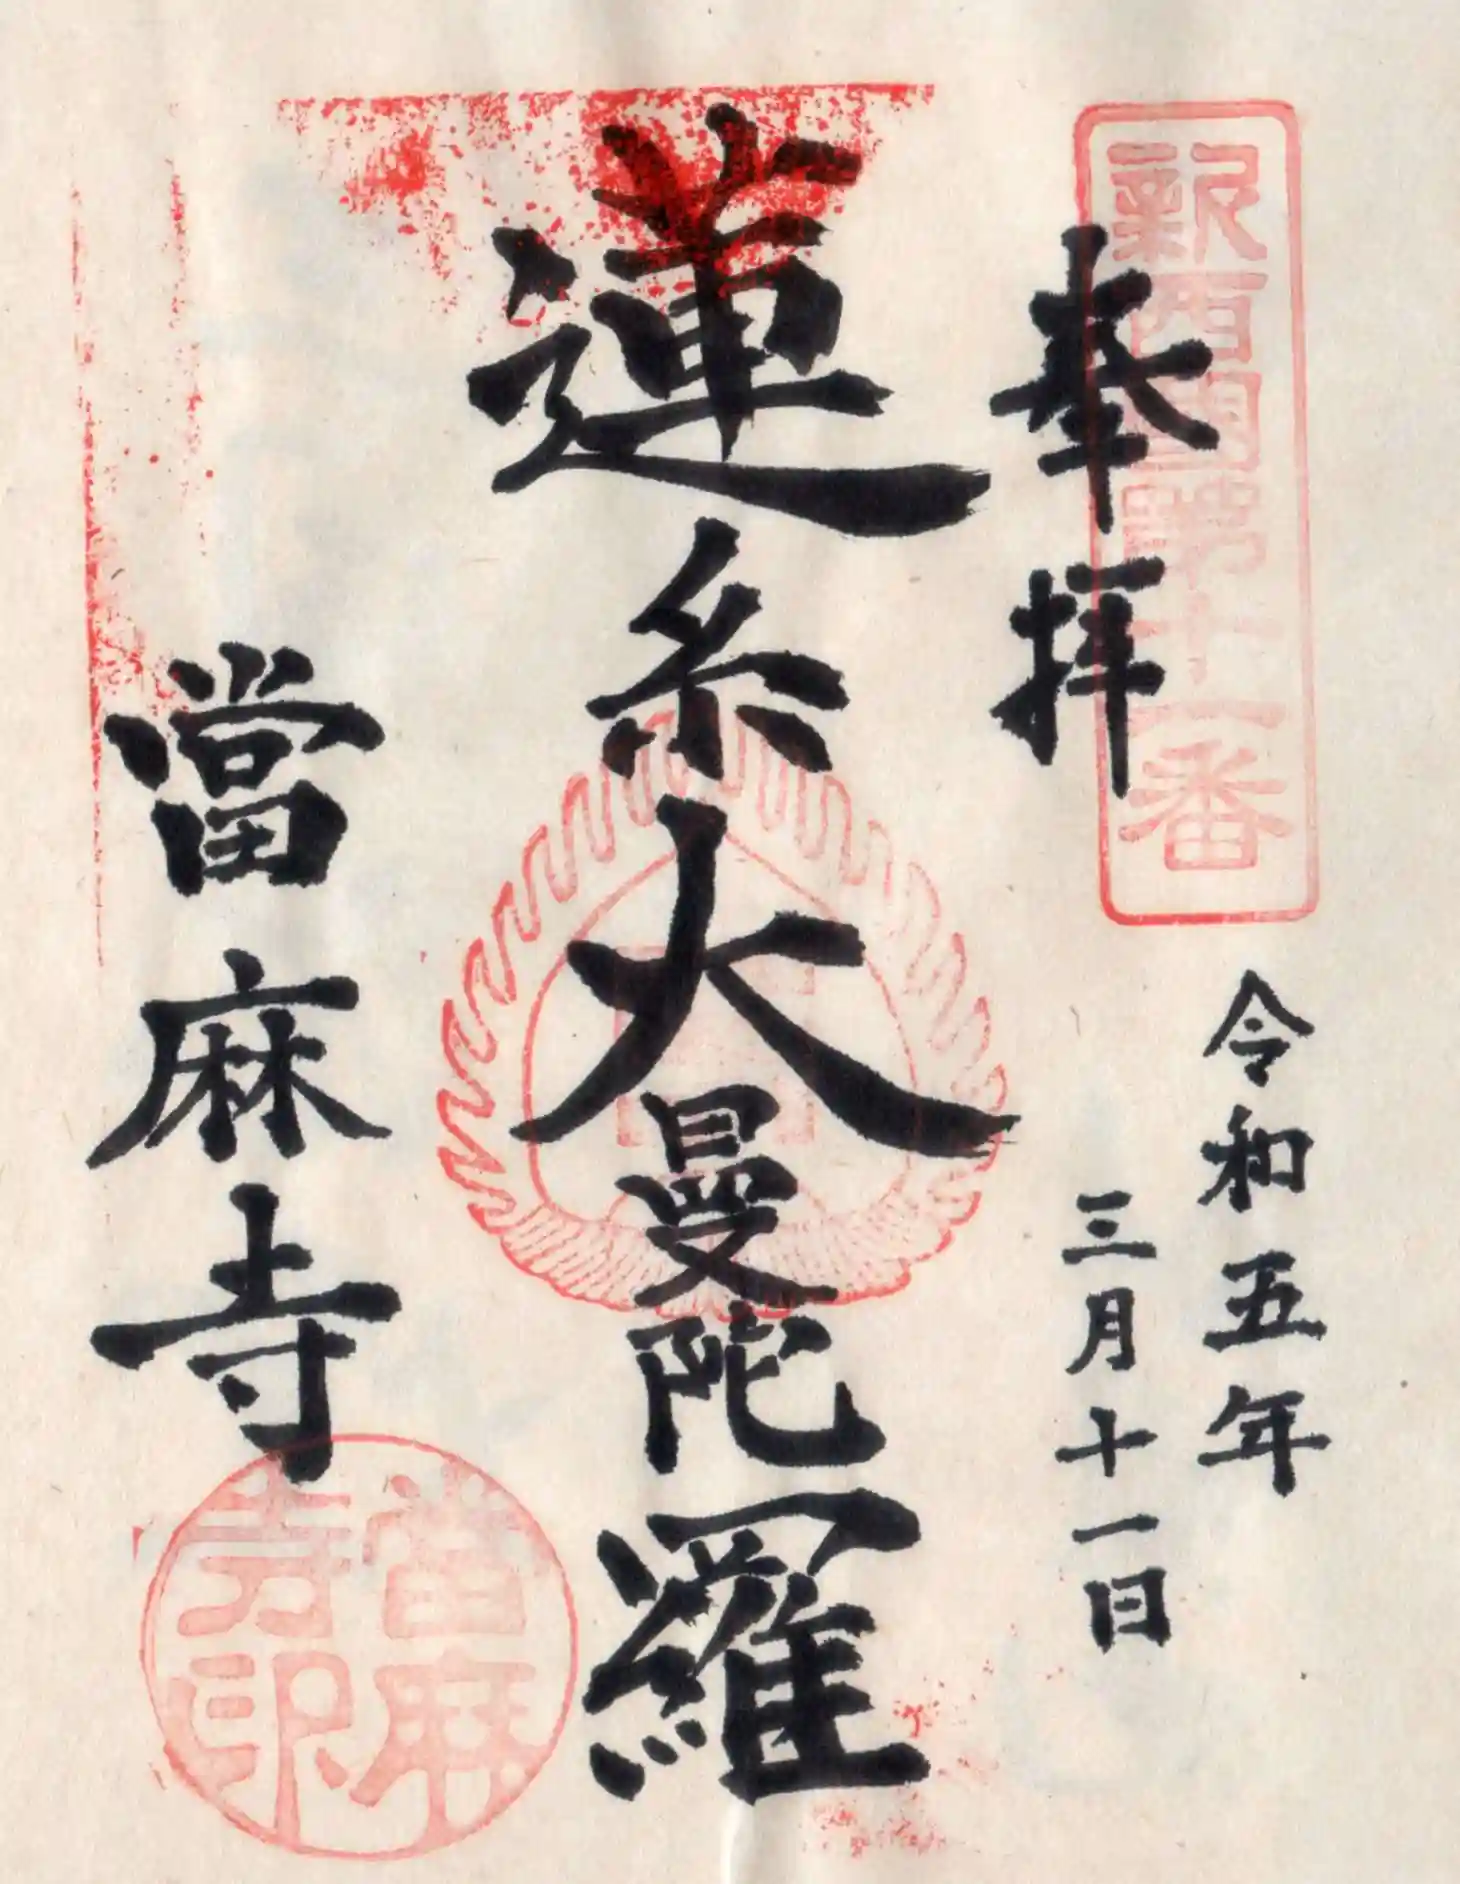 新西国第十一番
奉拝
令和五年
三月十一日
蓮糸大曼陀羅
當麻寺
當麻
寺印